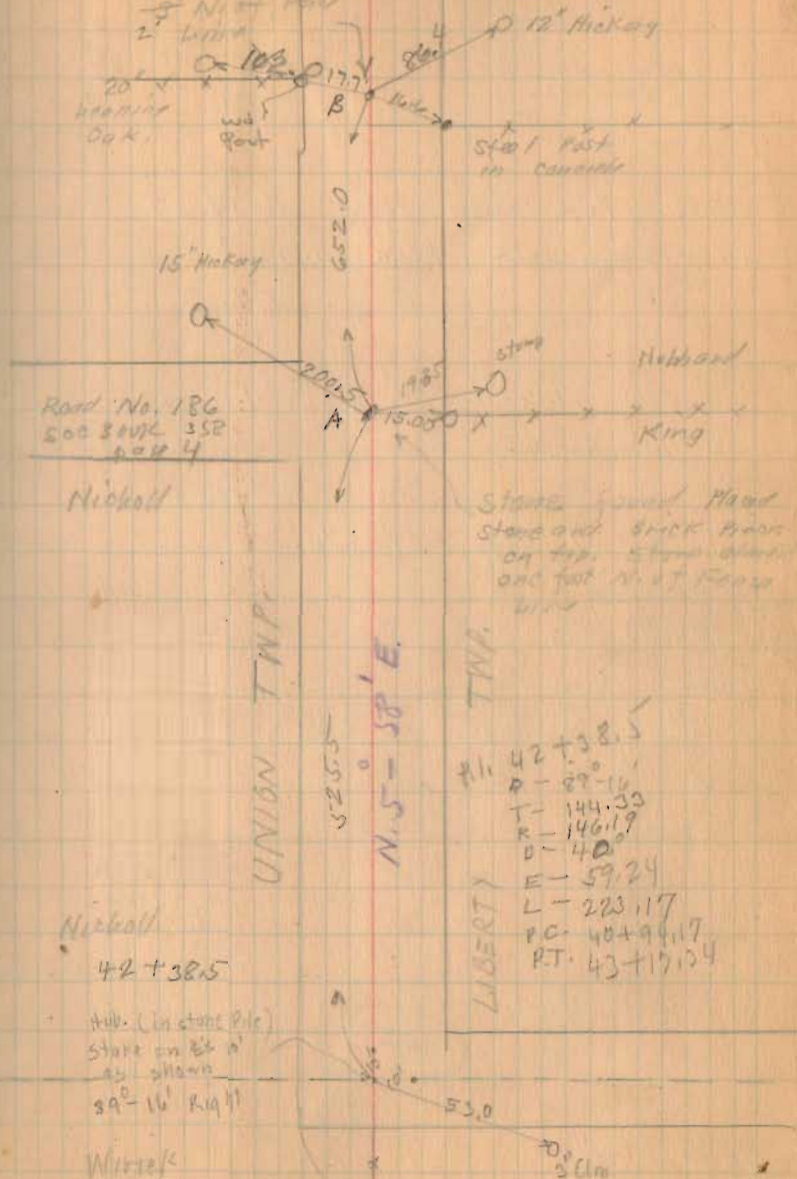 2" Line
12" Hickory
103
86.4
17.7
20"
Oak.
wd
Post
B
16.6
Steel Post
in concrete
652.0
15" Hickory
200.5
198.5
Stump
Hubbard
Road No. 186
See Book 358
page 4
A
15.05
King
Nicholl
Stone found Placed
stone and Brick
on top. Stone
one foot N. of Fence
Line
UNION TWP.
LIBERTY TWP.
525.5
N. 5° - 58' E.
P.I. 42 + 38.5
Δ - 89° - 16'
T - 144.33
R - 146.19
D - 40°
E - 59.24
L - 223.17
P.C. 40 + 94.17
P.T. 43 + 17.34
Nicholl
42 + 38.5
Hub. (in stone Pile)
Stake on
as shown
89° - 16' Right
53.0
Elm